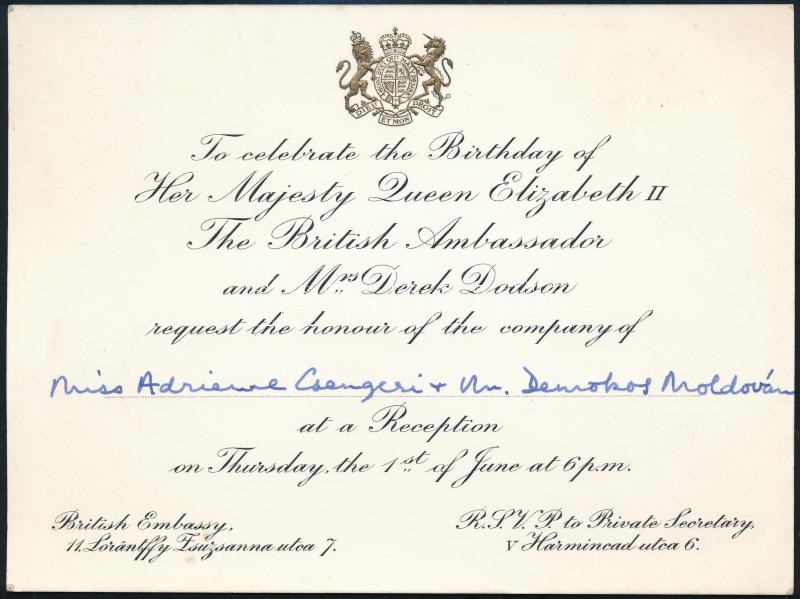 DIEU ET MON DROIT
To celebrate the Birthday of
Her Majesty Queen Elizabeth II
The British Ambassador
and Mrs Derek Dodson
request the honour of the company of
Miss Adrienne Csengeri + Mr. Demokos Moldován
at a Reception
on Thursday, the 1st of June at 6 p.m.
British Embassy,
11. Lorántffy Zsuzsanna utca 7.
R.S.V.P. to Private Secretary,
V Harmincad utca 6.